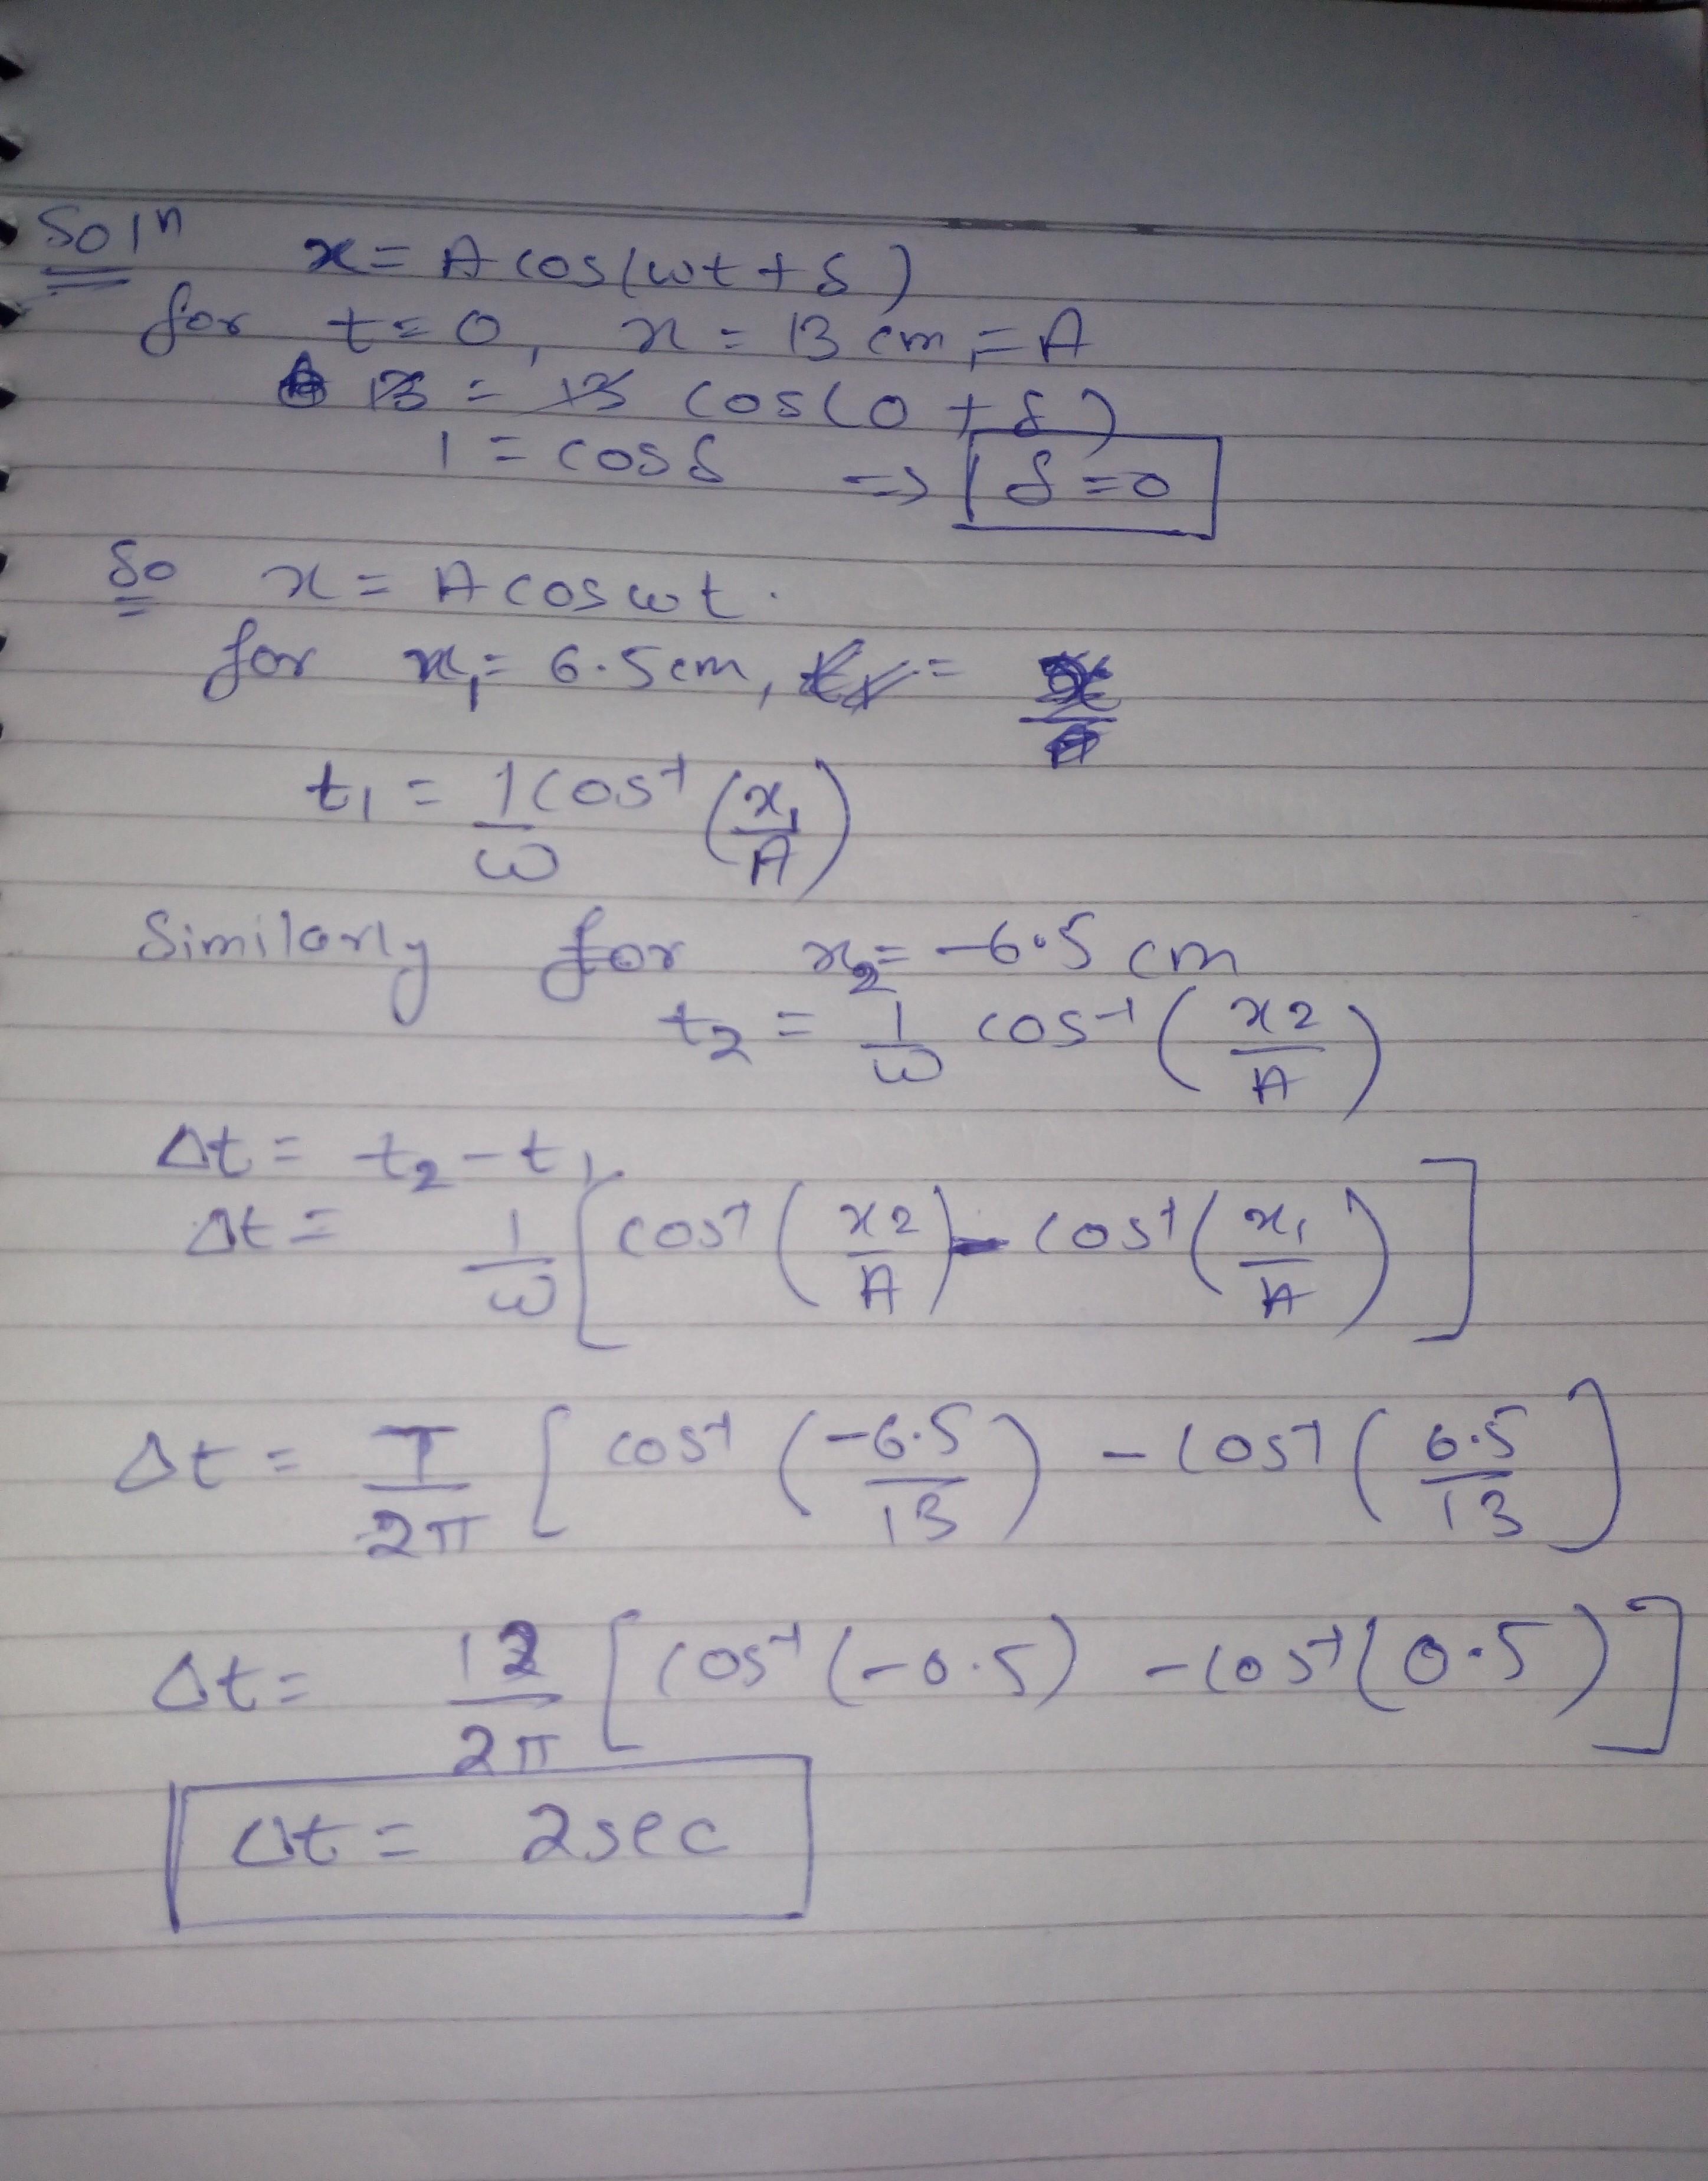 Soln x = A cos(ωt + δ)
for t = 0, x = 13 cm = A
13 = 13 cos(0 + δ)
1 = cosδ => δ = 0
So x = A cosωt.
for x1 = 6.5cm, t1 =
t1 = 1/ω cos-1 (x1/A)
Similarly for x2 = -6.5 cm
t2 = 1/ω cos-1 (x2/A)
Δt = t2 - t1
Δt = 1/ω [cos-1 (x2/A) - cos-1 (x1/A)]
Δt = T/2π [cos-1 (-6.5/13) - cos-1 (6.5/13)]
Δt = 12/2π [cos-1 (-0.5) - cos-1 (0.5)]
Δt = 2sec